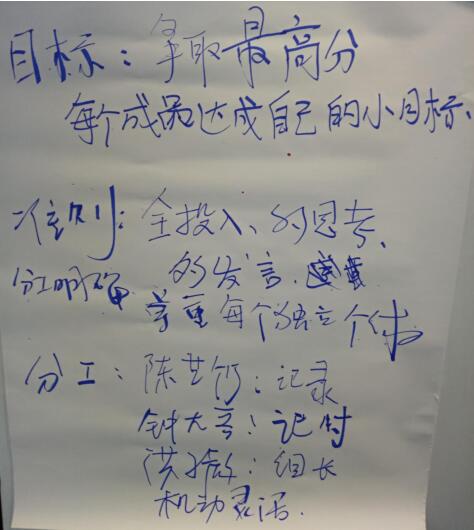 目标：争取最高分
每个成员达成自己的小目标、
准则：全投入、多思考、
分工明确 多发言、
尊重每个独立个体
分工：陈艺竹：记录
钟大哥：记时
洪璈：组长
机动灵活.